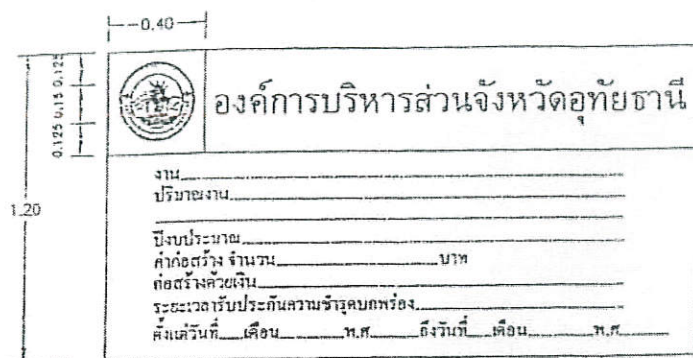 0.40
0.125 0.15 0.125
1.20
องค์การบริหารส่วนจังหวัดอุทัยธานี
งาน
ปริมาณงาน
ปีงบประมาณ
ค่าก่อสร้าง จำนวน บาท
ก่อสร้างด้วยเงิน
ระยะเวลารับประกันความชำรุดบกพร่อง
ตั้งแต่วันที่ เดือน พ.ศ. ถึงวันที่ เดือน พ.ศ.